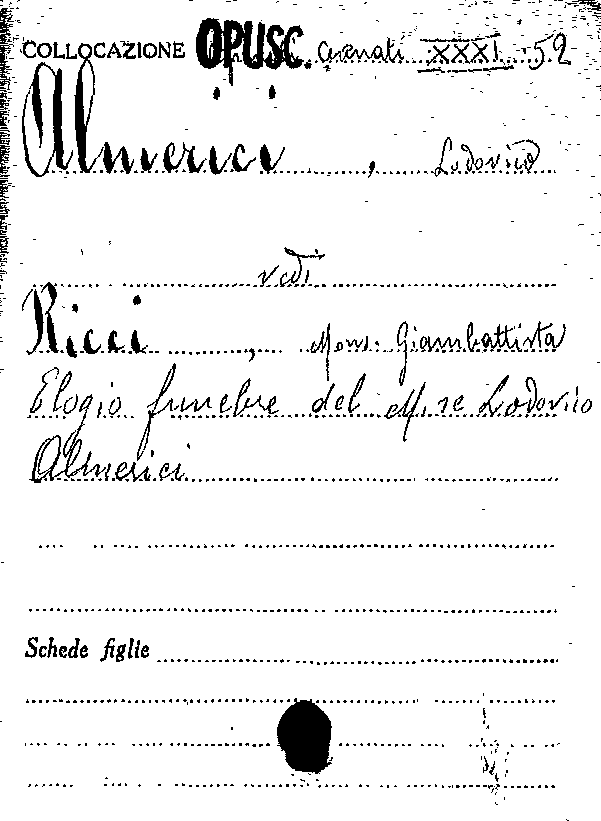 COLLOCAZIONE OPUSC. XXXI 52
Almerici, Lodovico
vedi
Ricci, Mons. Giambattista
Elogio funebre del M.se Lodovico
Almerici
Schede figlie